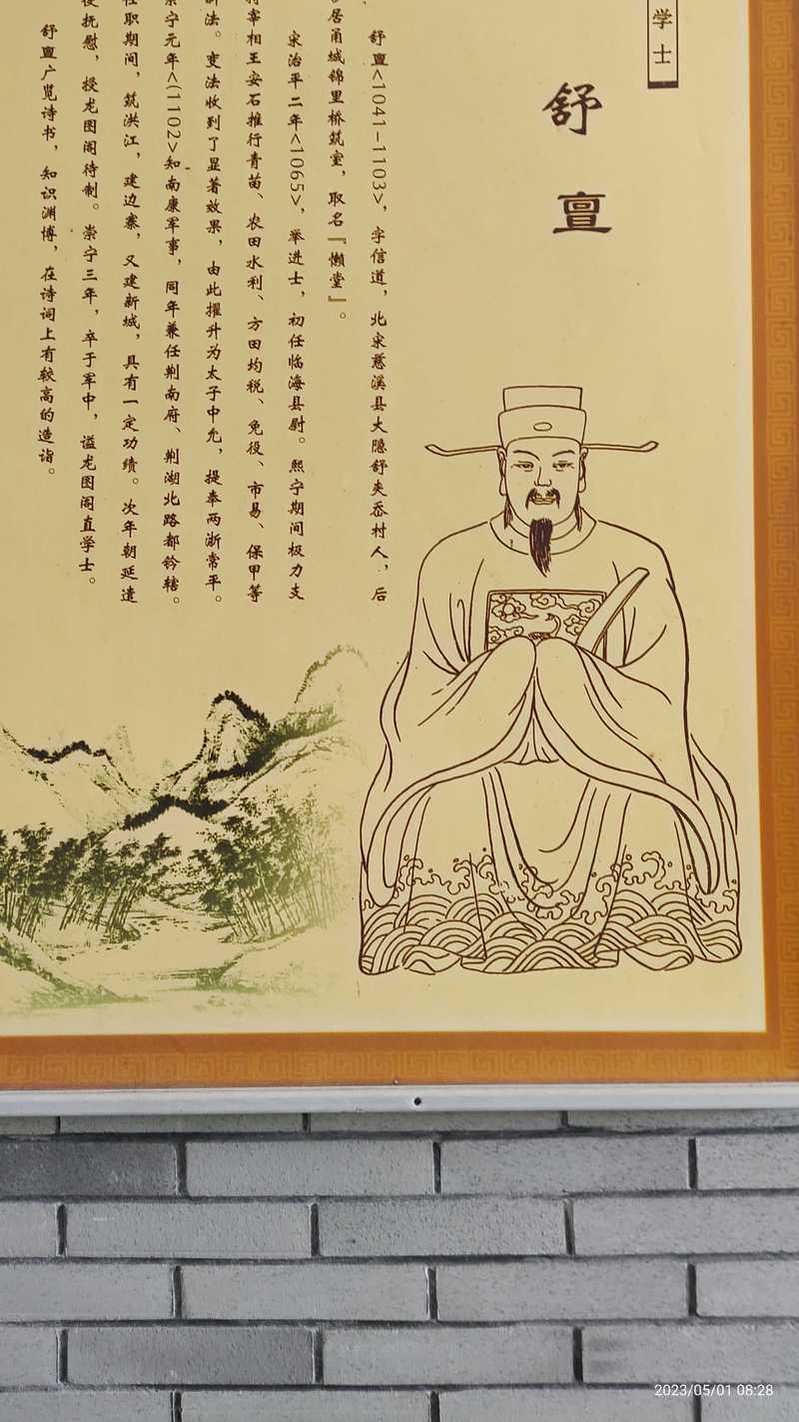 学士
舒亶
舒亶<1041-1103>，字信道，北宋慈溪县大隐舒夹岙村人，后
居甬城锦里桥筑室，取名『懒堂』。
宋治平二年<1065>，举进士，初任临海县尉。熙宁期间极力支
持宰相王安石推行青苗、农田水利、方田均税、免役、市易、保甲等
法。变法收到了显著效果，由此擢升为太子中允，提奉两浙常平。
宁元年<(1102>知南康军事，同年兼任荆南府、荆湖北路都钤辖。
任职期间，筑洪江，建边寨，又建新城，具有一定功绩。次年朝延遣
使抚慰，授龙图阁待制。崇宁三年，卒于军中，谥龙图阁直学士。
舒亶广览诗书，知识渊博，在诗词上有较高的造诣。
2023/05/01 08:28